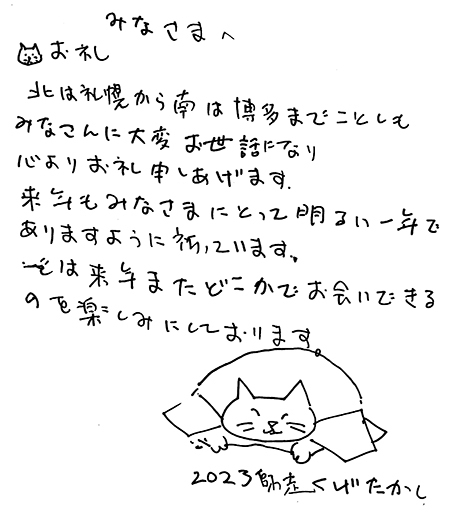 みなさまへ
お礼
北は札幌から南は博多までことしも
みなさんに大変お世話になり
心よりお礼申しあげます.
来年もみなさまにとって明るい一年で
ありますように祈っています。
では来年またどこかでお会いできる
のを楽しみにしております。
2023師走くげたかし